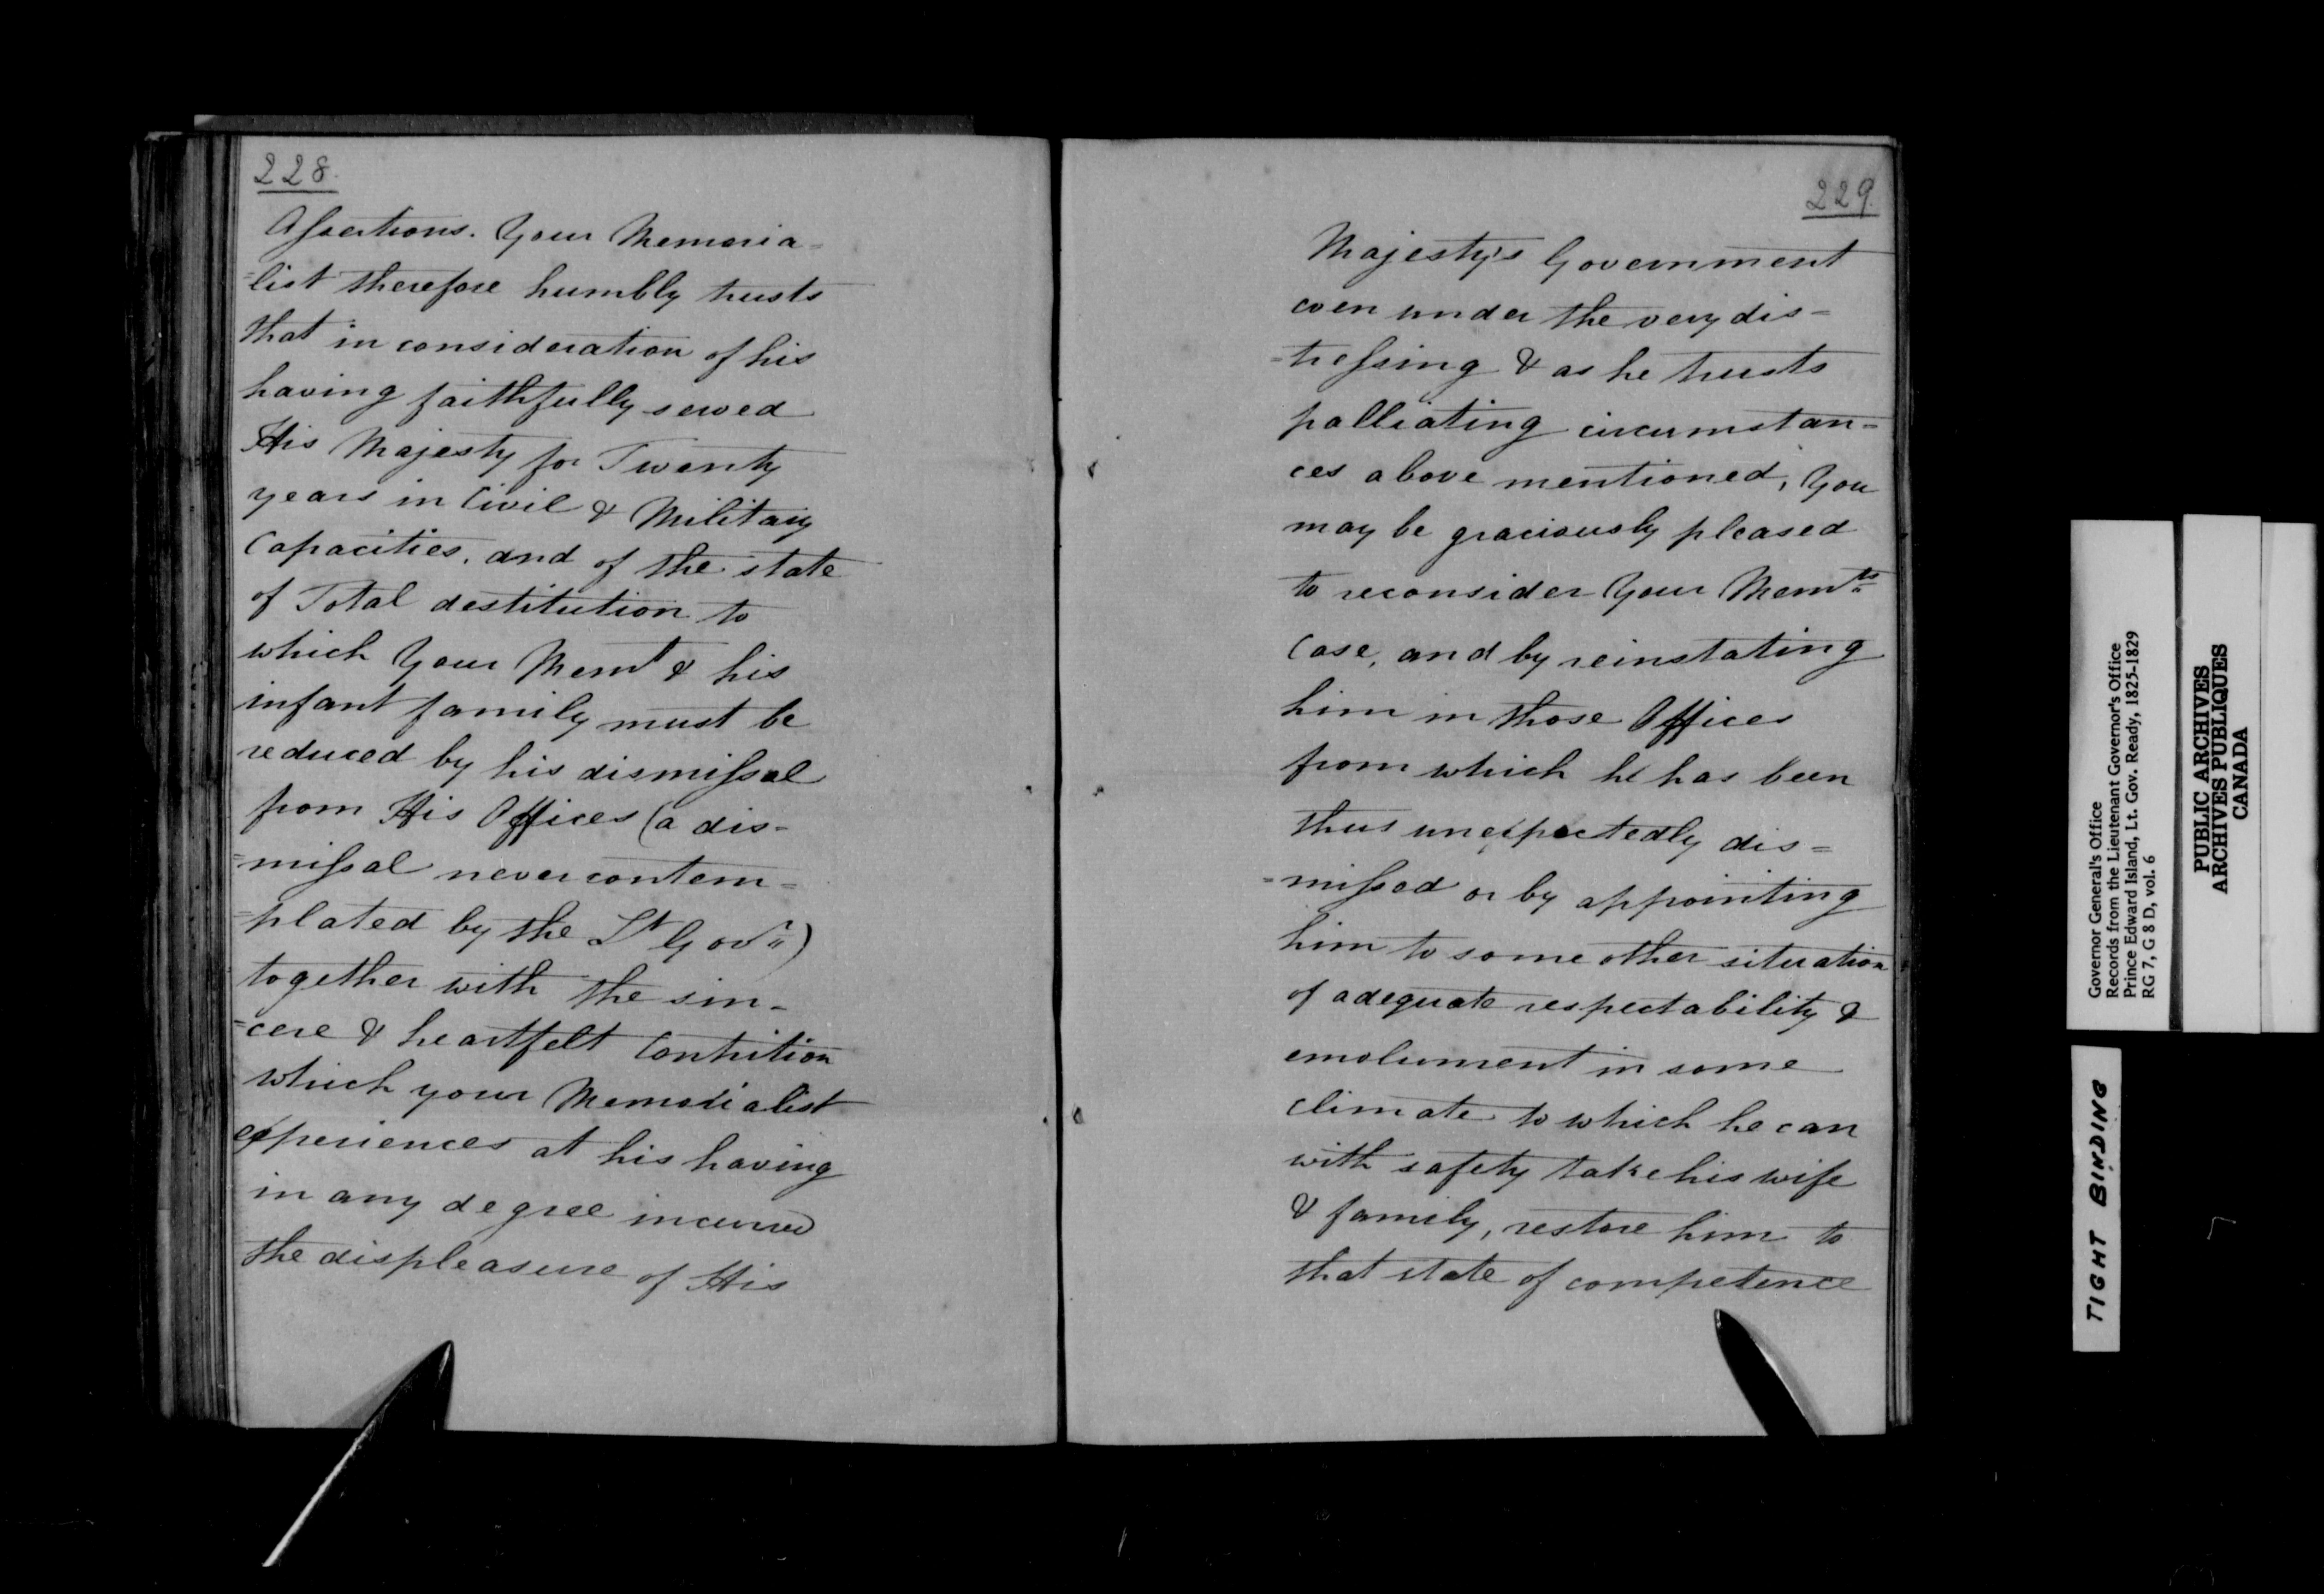 228.
Assertions. Your Memoria=
=list therefore humbly trusts
that in consideration of his
having faithfully served
His Majesty for Twenty
years in Civil & Military
Capacities, and of the state
of Total destitution to
which Your Memt & his
infant family must be
reduced by his dismissal
from His Offices (a dis-
=missal never contem=
=plated by the Lt Govr)
together with the sin-
=cere & heartfelt Contrition
which your Memorialist
experiences at his having
in any degree incurred
the displeasure of His
229.
Majesty's Government
even under the very dis=
=tressing & as he trusts
palliating circumstan=
ces above mentioned, You
may be graciously pleased
to reconsider Your Memts
Case, and by reinstating
him in those Offices
from which he has been
thus unexpectedly dis=
=missed or by appointing
him to some other situation
of adequate respectability &
emolument in some
climate to which he can
with safety take his wife
& family, restore him to
that state of competence
Governor General's Office
Records from the Lieutenant Governor's Office
Prince Edward Island, Lt. Gov. Ready, 1825-1829
RG 7, G 8 D, vol. 6
PUBLIC ARCHIVES
ARCHIVES PUBLIQUES
CANADA
TIGHT BINDING